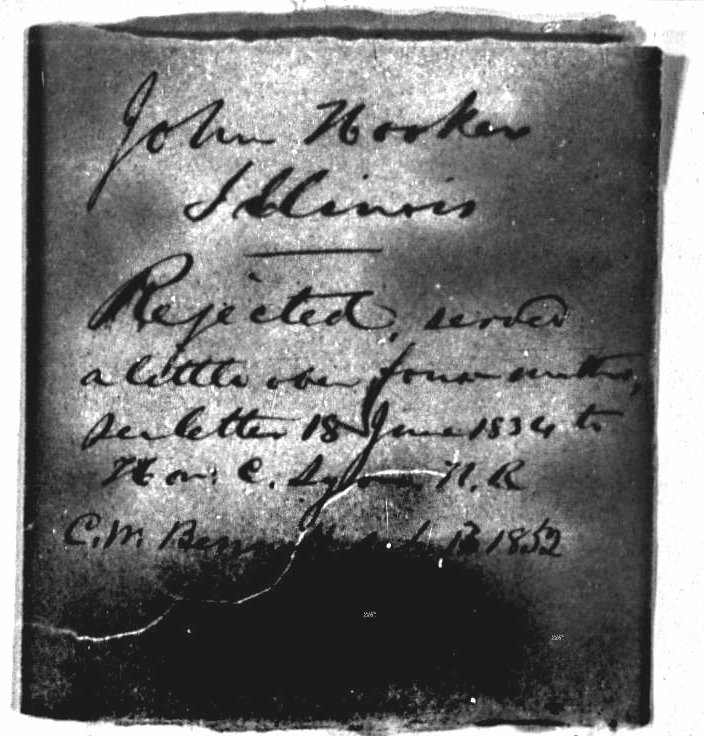 John Hooker
Illinois
Rejected, served
a little over four months,
see letter 18 June 1834 to
Hon. C. Lyon H.R
C.M. 1852